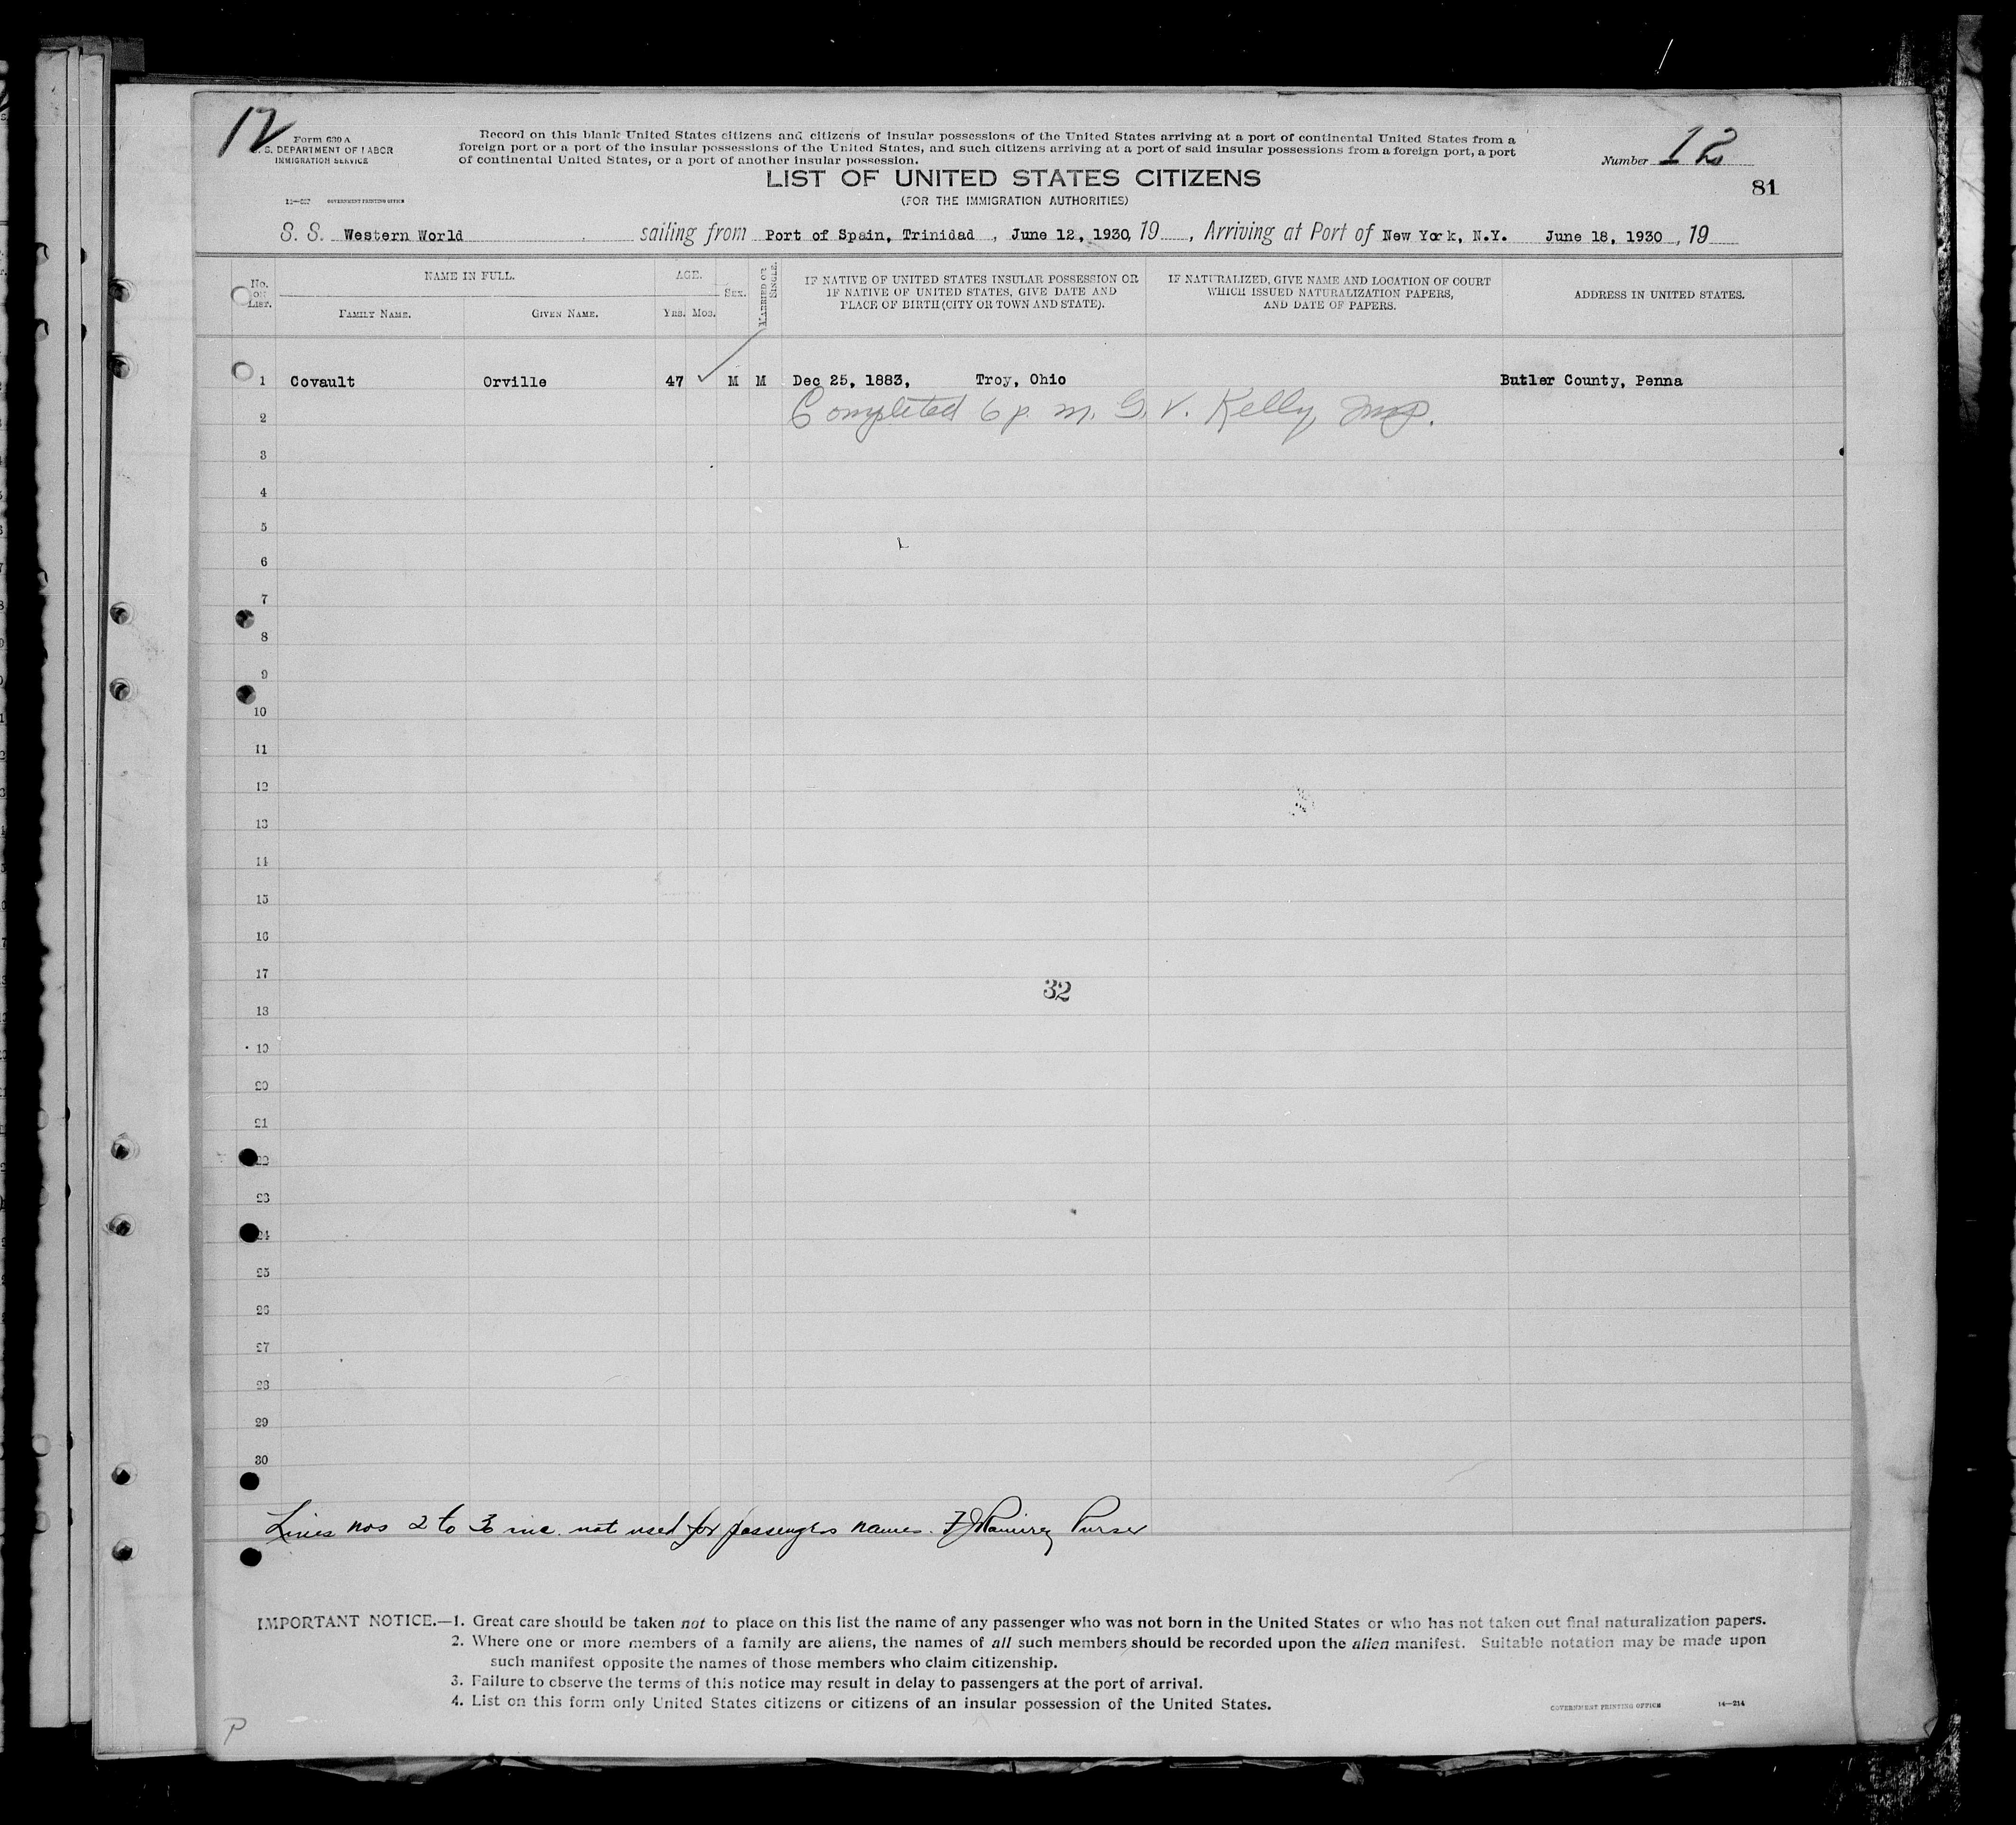 12
Form 630 A
U. S. DEPARTMENT OF LABOR
IMMIGRATION SERVICE
Record on this blank United States citizens and citizens of insular possessions of the United States arriving at a port of continental United States from a
foreign port or a port of the insular possessions of the United States, and such citizens arriving at a port of said insular possessions from a foreign port, a port
of continental United States, or a port of another insular possession.
Number 12
81
LIST OF UNITED STATES CITIZENS
(FOR THE IMMIGRATION AUTHORITIES)
GOVERNMENT PRINTING OFFICE
S. S. Western World sailing from Port of Spain, Trinidad , June 12, 1930, 19 , Arriving at Port of New York, N.Y. June 18, 1930 , 19
No. ON LIST.
NAME IN FULL.
FAMILY NAME.
GIVEN NAME.
AGE.
YRS. MOS.
SEX.
MARRIED OR SINGLE.
IF NATIVE OF UNITED STATES INSULAR POSSESSION OR
IF NATIVE OF UNITED STATES, GIVE DATE AND
PLACE OF BIRTH (CITY OR TOWN AND STATE).
IF NATURALIZED, GIVE NAME AND LOCATION OF COURT
WHICH ISSUED NATURALIZATION PAPERS,
AND DATE OF PAPERS.
ADDRESS IN UNITED STATES.
1 Covault Orville 47 M M Dec 25, 1883, Troy, Ohio Butler County, Penna
2 Completed 6 p. m. G. V. Kelly, Insp.
3
4
5
6
7
8
9
10
11
12
13
14
15
16
17
32
18
19
20
21
22
23
24
25
26
27
28
29
30
Lines nos 2 to 30 inc. not used for passengers names. Purser
IMPORTANT NOTICE.—1. Great care should be taken not to place on this list the name of any passenger who was not born in the United States or who has not taken out final naturalization papers.
2. Where one or more members of a family are aliens, the names of all such members should be recorded upon the alien manifest. Suitable notation may be made upon
such manifest opposite the names of those members who claim citizenship.
3. Failure to observe the terms of this notice may result in delay to passengers at the port of arrival.
4. List on this form only United States citizens or citizens of an insular possession of the United States.
GOVERNMENT PRINTING OFFICE 14—214
P